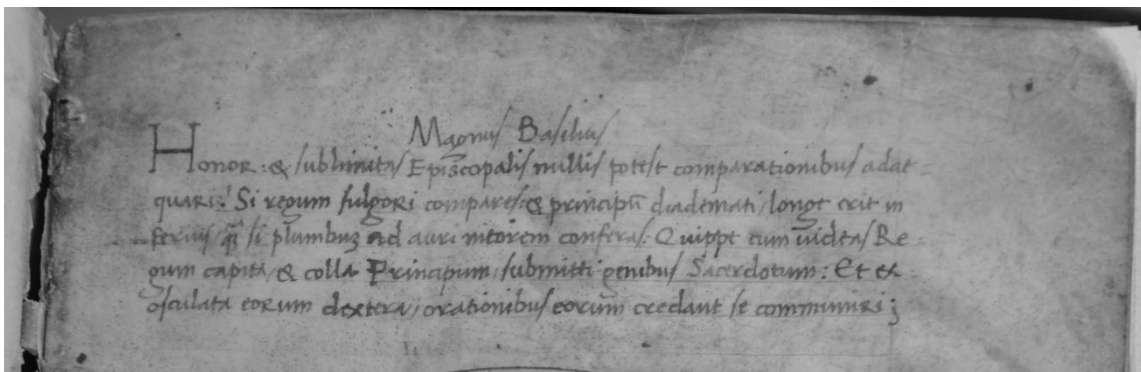 Magnus Basilius
Honor: & sublimitas Episcopalis nullis potest comparationibus adae=
quari: Si regum fulgori compares: & principũ diademati, longe erit in
ferius, q̃ si plumbuʒ ad auri nitorem conferas. Quippe cum videas Re=
gum capita, & colla Principum, submitti genibus Sacerdotum: Et ex
osculata eorum dextera, orationibus eorum credant se communiri;